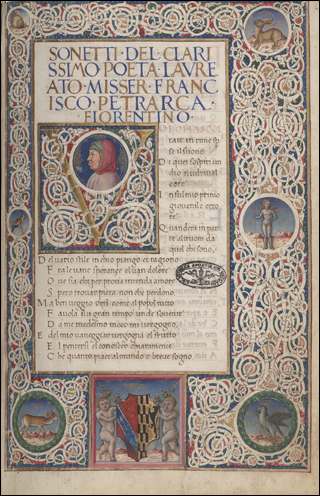 SONETTI · DEL · CLARI
SSIMO POETA · LAVRE
ATO · MISSER · FRANC
ISCO · PETRARCA ·
· FIORENTINO ·
V
tate in rime sp
se il suono
Di quei sospiri un
dio nudriva il
core
in sul mio primo
giovenile erro
re
Quandera in par
te altruom da
quel chi sono
Del vario stile in chio piango et ragiono
Fra le vane speranze el van dolore
Ove sia chi per prova intenda amore
Spero trovar pieta non che perdono
Ma ben veggio or si come al popol tutto
Favola fui gran tempo unde sovente
Di me medesmo meco mi vergogno
E del mio vaneggiar vergogna el frutto
El pentersi el conoscer chiaramente
Che quanto piace al mondo e breve sogno